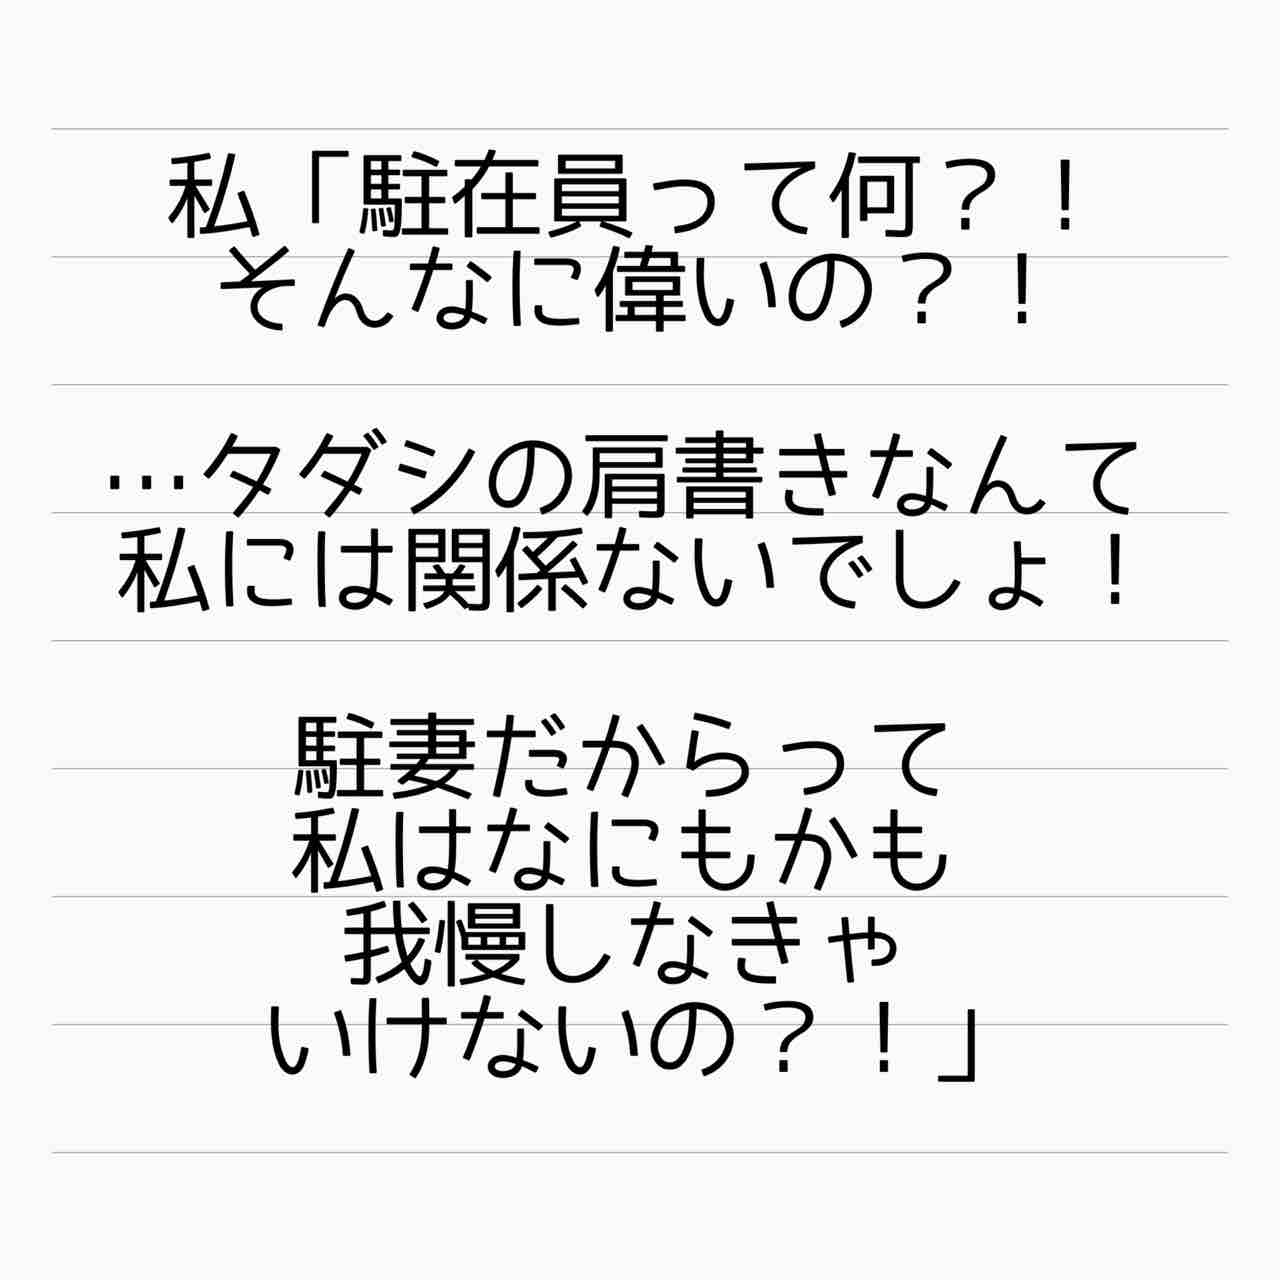 私「駐在員って何？！
そんなに偉いの？！
…タダシの肩書きなんて
私には関係ないでしょ！
駐妻だからって
私はなにもかも
我慢しなきゃ
いけないの？！」